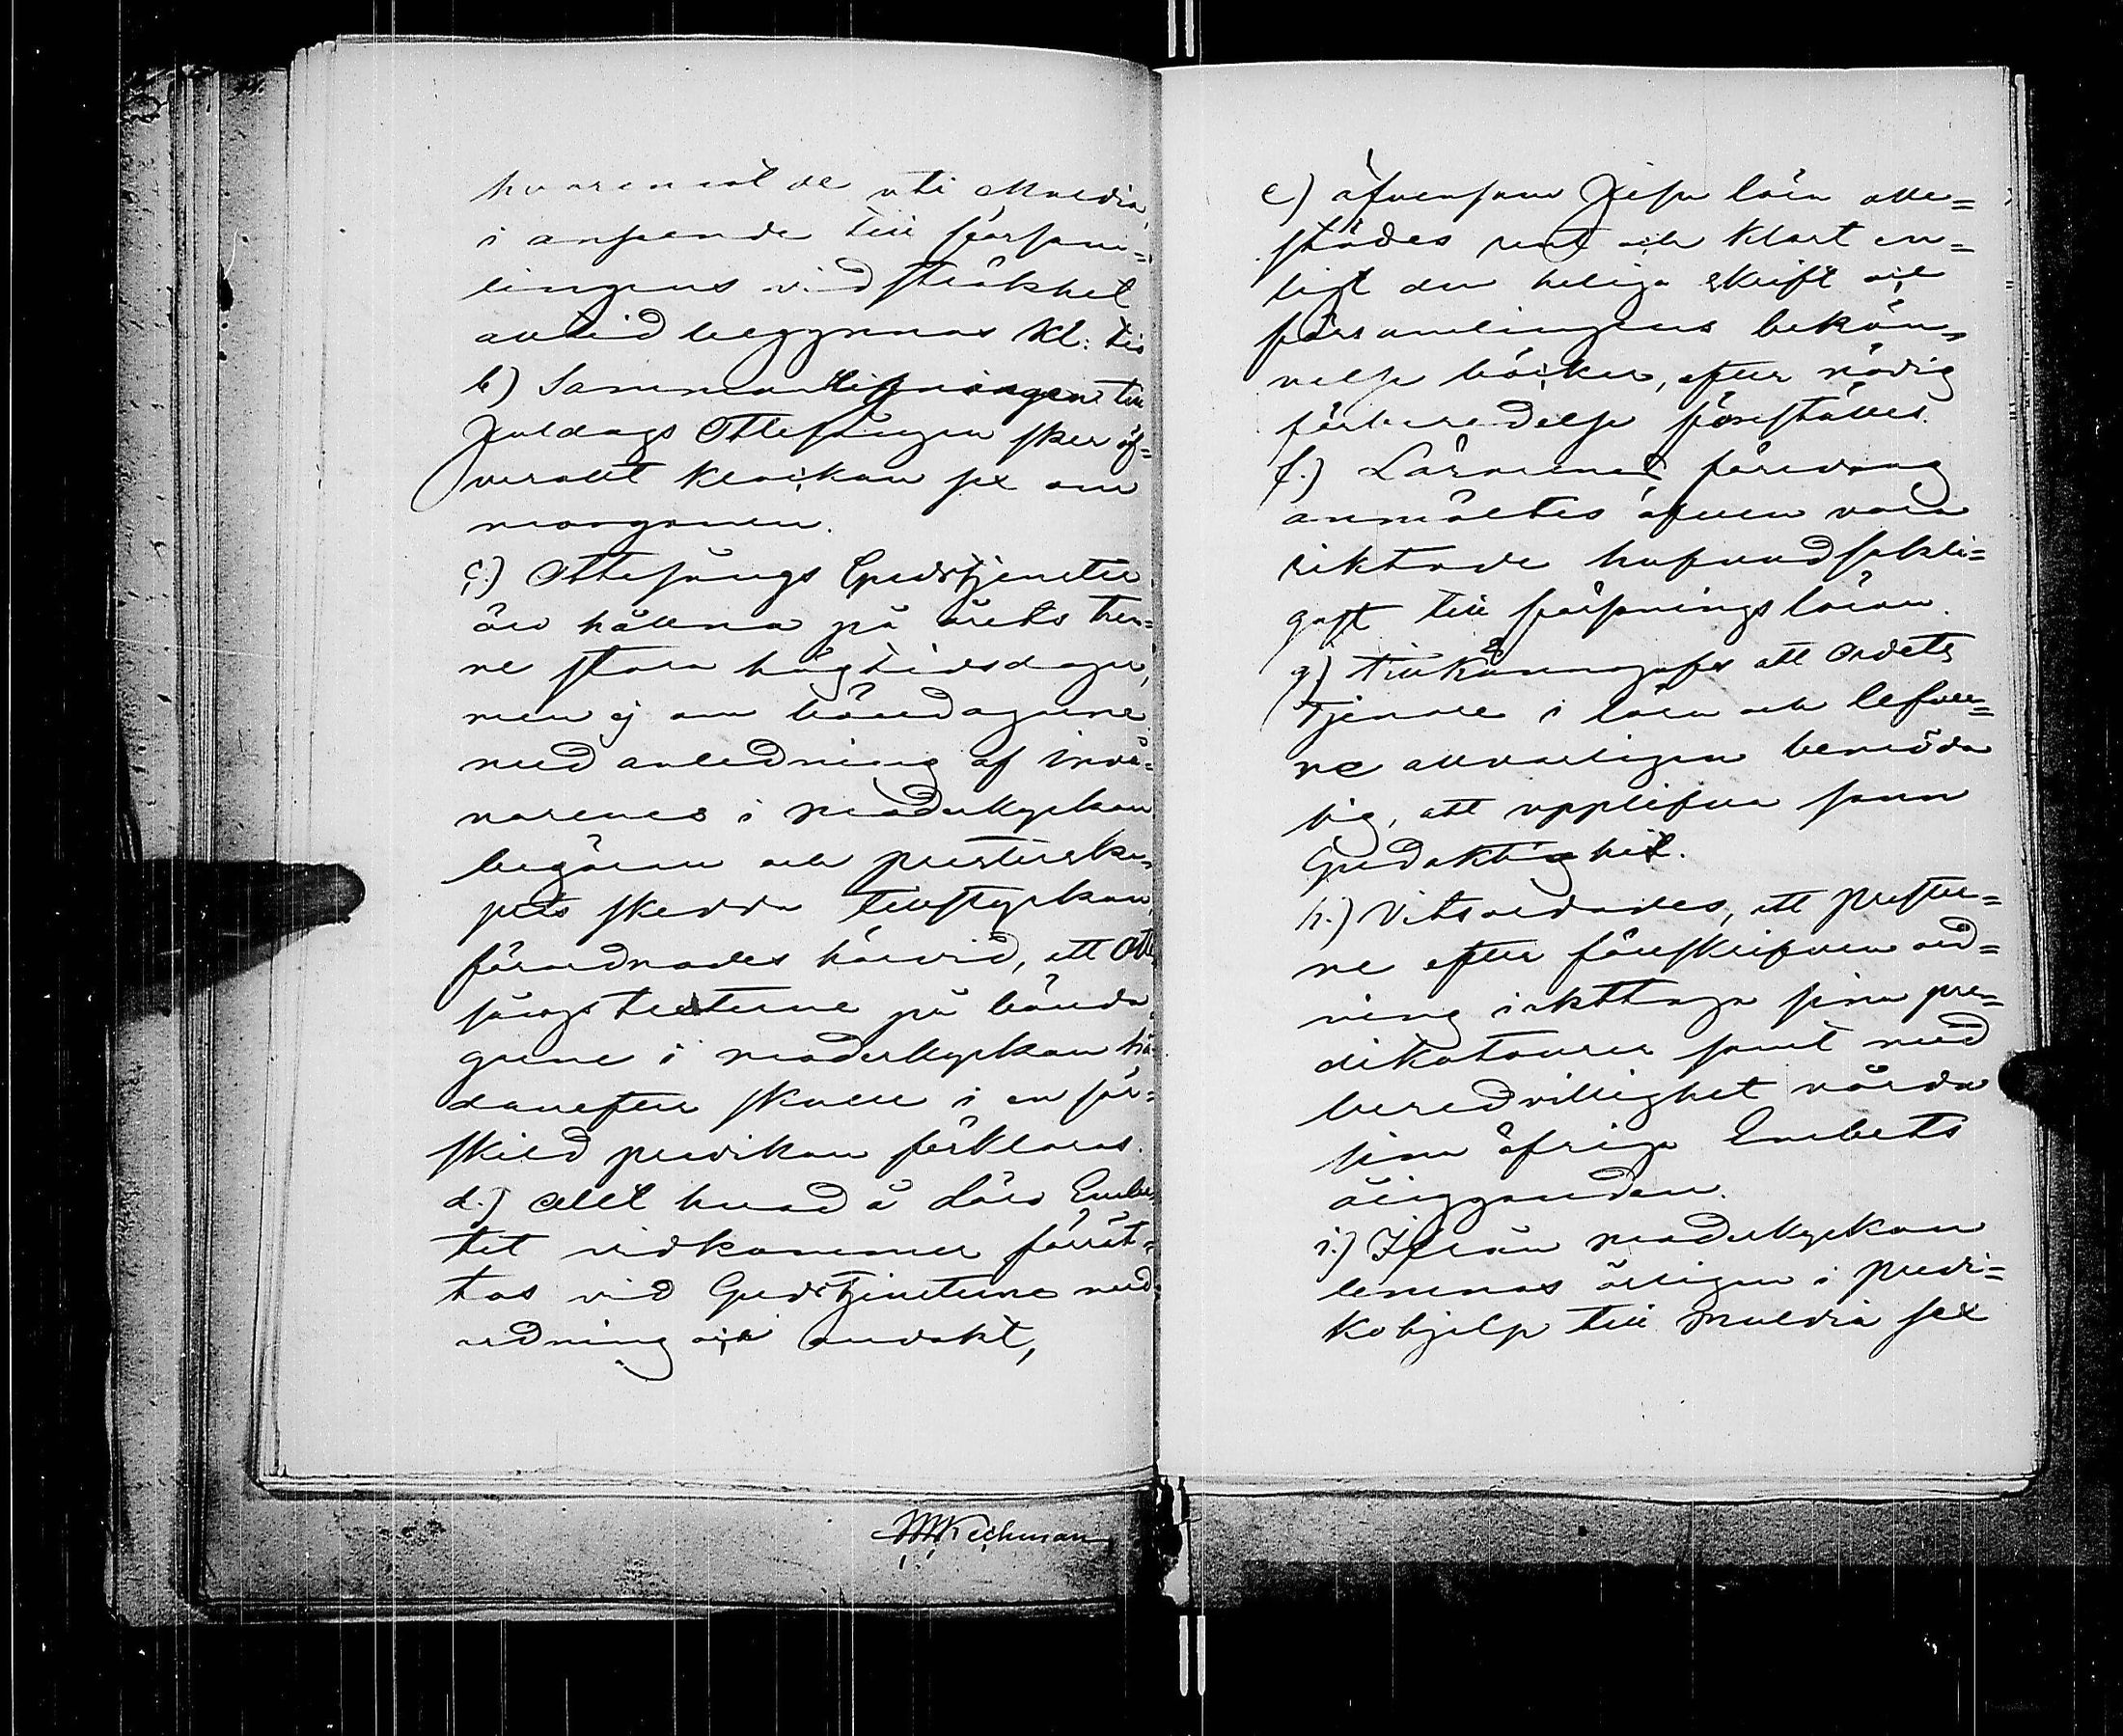 hvaremot de uti Muldia,
i anseende till försam=
lingens vidsträkhet
alltid begynnas Kl: tio
b) Sammanringningen till
Juldags Ottesången sker öf=
verallt klockan sex om
morgonen.
c.) Ottesångs Gudstjenster
äro hållna på årets tren=
ne stora högtidsdagar,
men ej om böndagarne
med anledning af invå=
narenes i moderkyrkan
begäran och presterska=
pets skedda tillstyrkan,
förordnades härvid, att Otte
sångs texterne på bönda=
garne i moderkyrkan hä=
danefter skulle i en sär=
skild predikan förklaras.
d.) Allt hvad å Läro Embe=
tet ankommer förrät=
tas vid Gudstjensterne med
ordning och andakt,
e) äfvensom Jesu lära alle=
städes rent och klart en=
ligt den heliga skrift och
församlingens bekän=
nelse böcker, efter nödig
förberedelse föreställes.
f.) Lärarenas föredrag
anmältes äfven vara
riktade hufvudsakli=
gast till försonings läran.
g) Tillkännagafs att Ordets
Tjenare i lära och lefver=
ne allvarligen bemöda
sig, att upplifva sann
Gudaktighet.
h.) Vitsordades, att prester=
ne efter föreskrifven ord=
ning iakttaga sina pre=
dikoturer samt med
beredvillighet vårda
sina öfriga Embets
åligganden.
i.) Ifrån moderkyrkan
lemnas årligen i predi=
kohjelp till Muldia sex